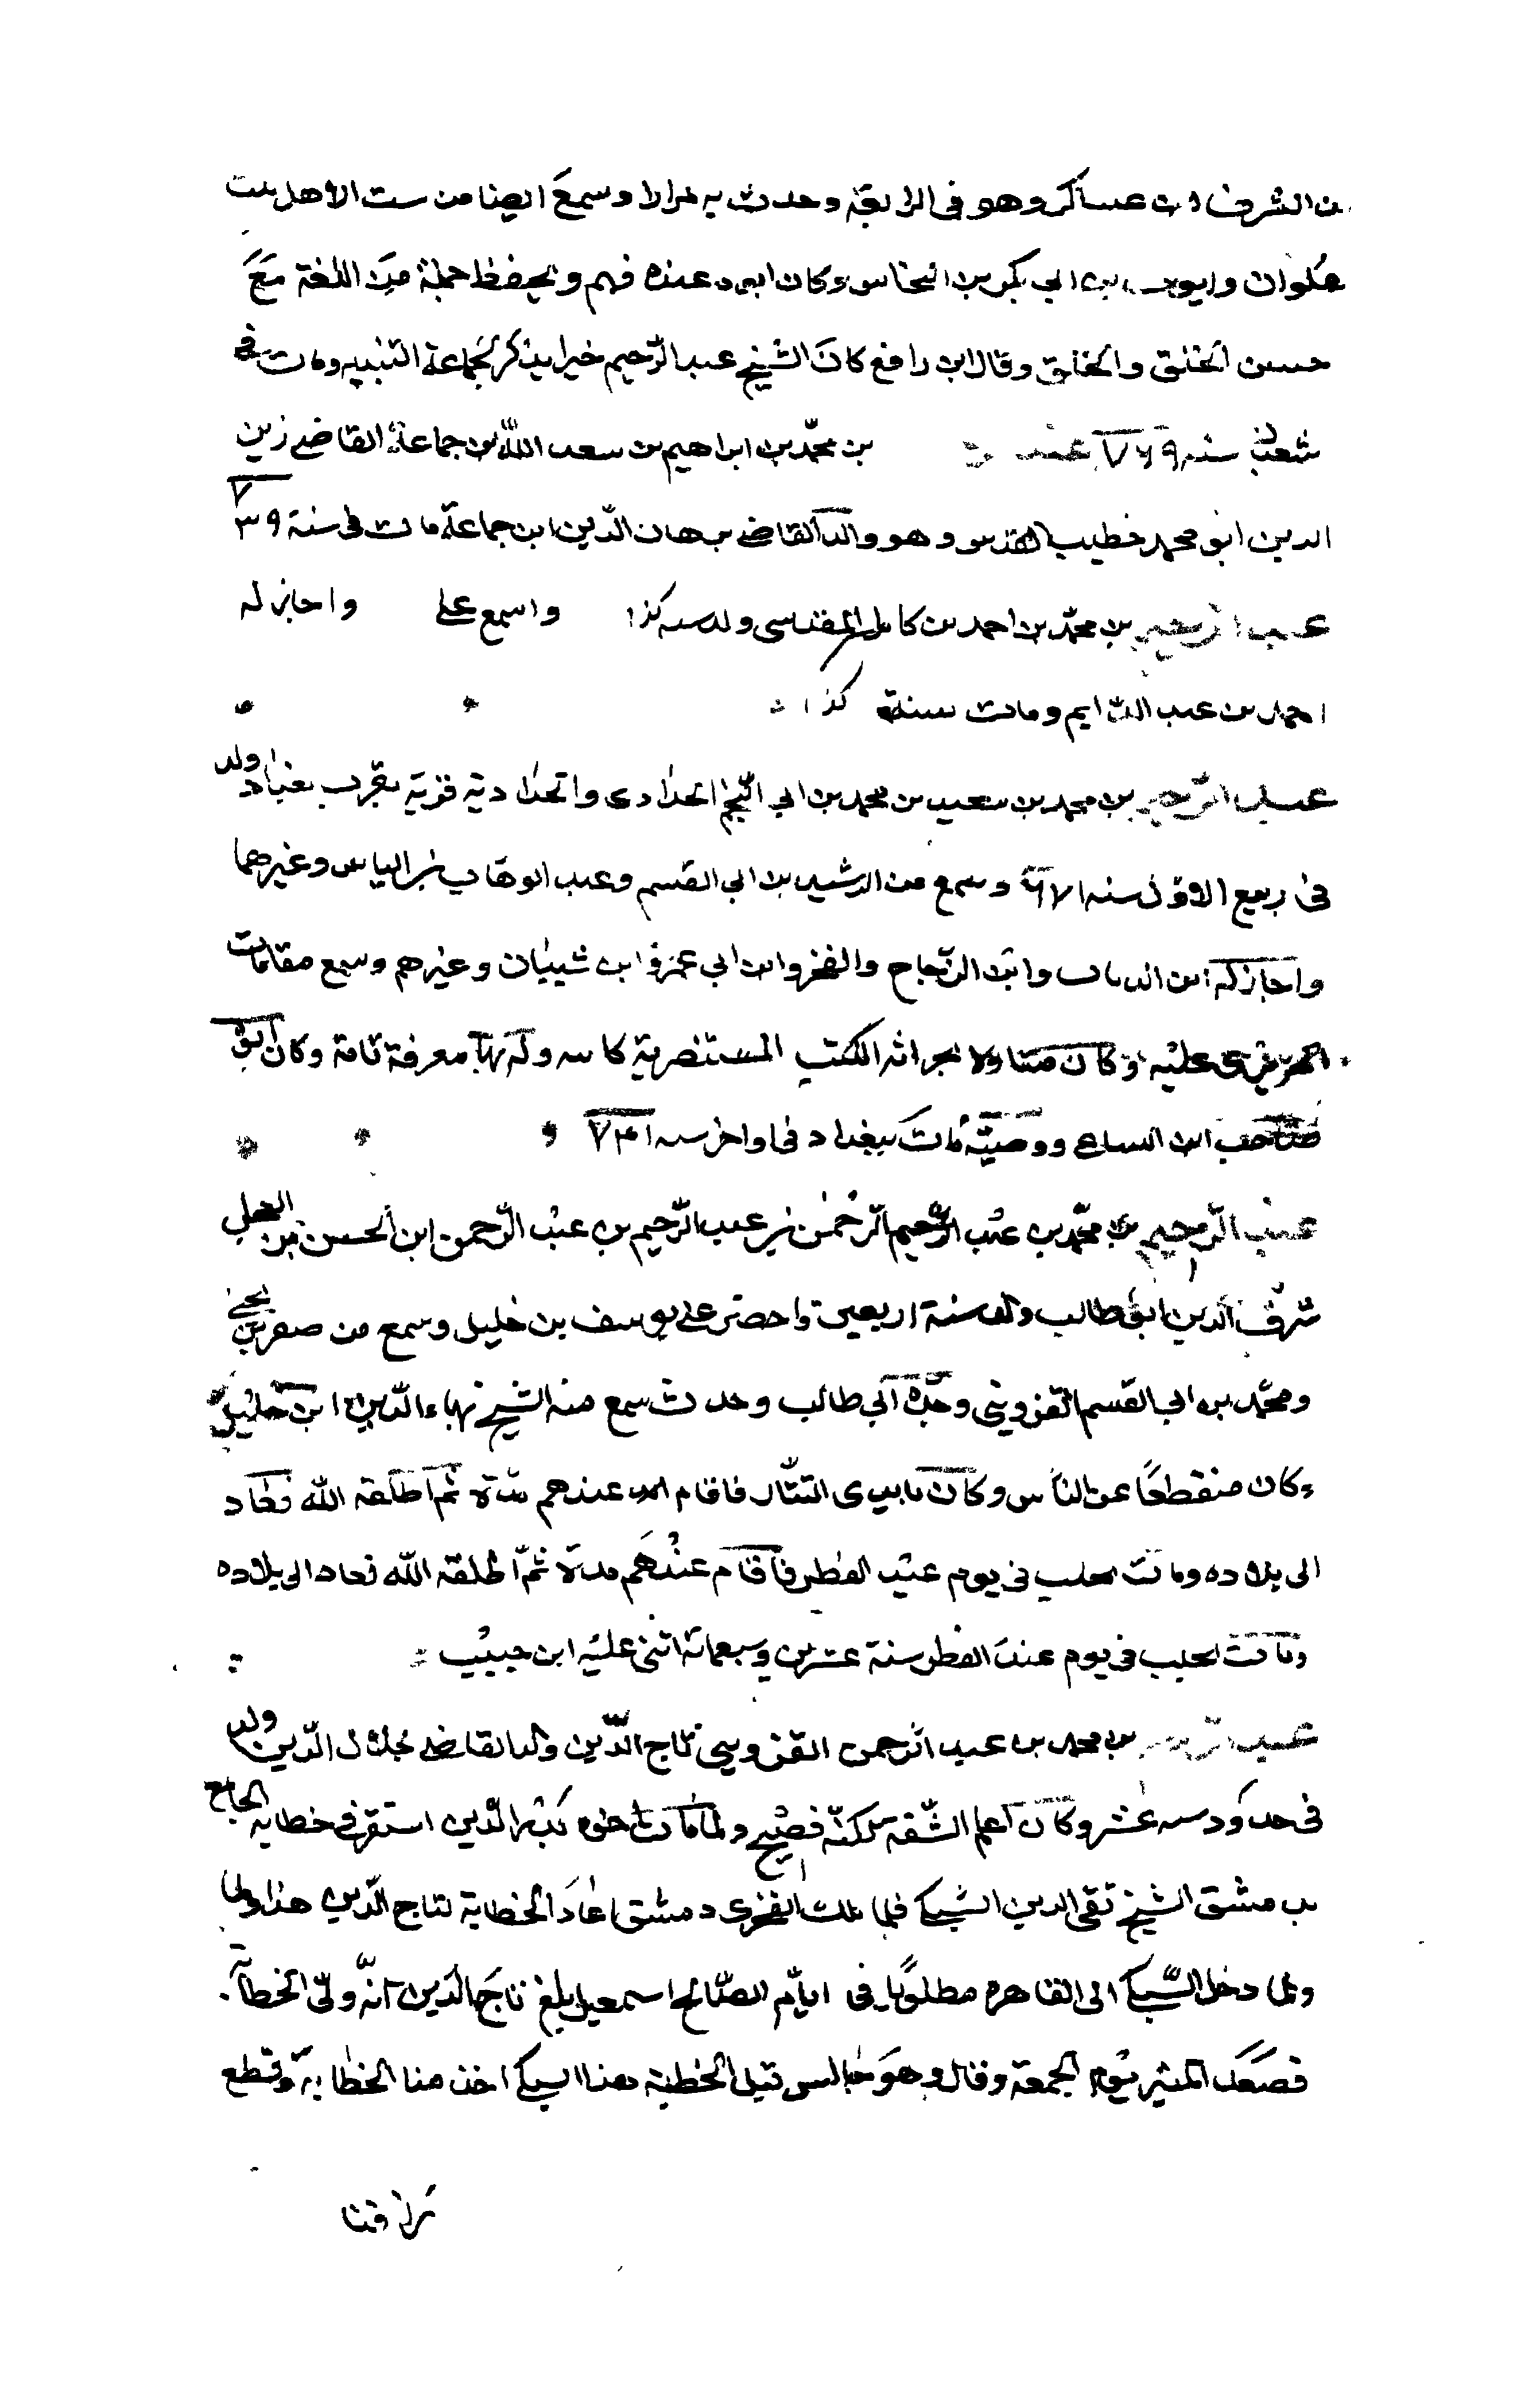 من الشرف ابن عساكر وهو فى الرابعة وحدث به مرارا وسمع ايضا من ست الاهل بنت
علوان وايوب بن ابي بكر بن النحاس وكان اسود عنده فهم ويحفظ جملة من اللغة مع
حسن الخلق والخلق وقال ابن رافع كان الشيخ عبد الرحيم خيرا يذكر لجماعة التنبيه ومات فى
شعبان سنه ٧٤٩ بن محمد بن ابراهيم بن سعد الله بن جماعة القاضى زين
الدين ابو محمد خطيب القدس وهو والد القاضى برهان الدين ابن جماعة مات فى سنة ٧٣٩
عبد الرحيم بن محمد بن احمد بن كامل المقدسى ولد سنه كذا واسمع على واجاز له
احمد بن عبد الدايم ومات سنة كذا
عبد الرحيم بن محمد بن سعيد بن محمد بن ابي النجم الحدادى والحدادية قرية بقرب بغداد ولد
فى ربيع الاول سنه ٦٧١ وسمع من الرشيد بن ابي القسم وعبد الوهاب بن الياس وغيرهما
واجاز له ابن الدباب وابن الزجاج والفخر وابن ابي عمر وابن شيبان وغيرهم وسمع مقامات
الحريرى عليه وكان مناولا بخزانة الكتب المستنصرية كابيه وله بها معرفة تامة وكان ابوه
صاحب ابن الساعى ووصيه مات ببغداد فى اواخر سنه ٧٤١
عبد الرحيم بن محمد بن عبد الرحيم الرحمن بن عبد الرحيم بن عبد الرحمن ابن الحسن بن العجمى
شرف الدين ابو طالب ولد سنة اربعين واحضر على يوسف بن خليل وسمع من صقر بن يحيى
ومحمد بن ابي القسم القزوينى وجده ابي طالب وحدث سمع منه الشيخ بهاء الدين ابن خليل
وكان منقطعا عن الناس وكان بايدى التتار فاقام عندهم مدة ثم اطلقه الله فعاد
الى بلاده ومات بحلب فى يوم عيد الفطر فاقام عندهم مدة ثم اطلقه الله فعاد الى بلاده
ومات بحلب فى يوم عيد الفطر سنة عشرين وسبعمائة اثنى عليه ابن حبيب
عبد الرحيم بن محمد بن عبد الرحمن القزوينى تاج الدين ولد القاضى جلال الدين ولد
فى حدود سنه عشر وكان اعلم الشفه لكنه فصيح ولما مات اخوه بدر الدين استقر فى خطابة الجامع
بدمشق الشيخ تقى الدين السبكى فلما ملك الفخرى دمشق اعاد الخطابة لتاج الدين هذا ولما
ولما دخل السبكى الى القاهرة مطلوبا فى ايام الصالح اسمعيل بلغ تاج الدين انه ولى الخطابة
فصعد المنبر يوم الجمعة وقال وهو جالس قبل الخطبة هذا السبكى اخذ منا الخطابة وقطع